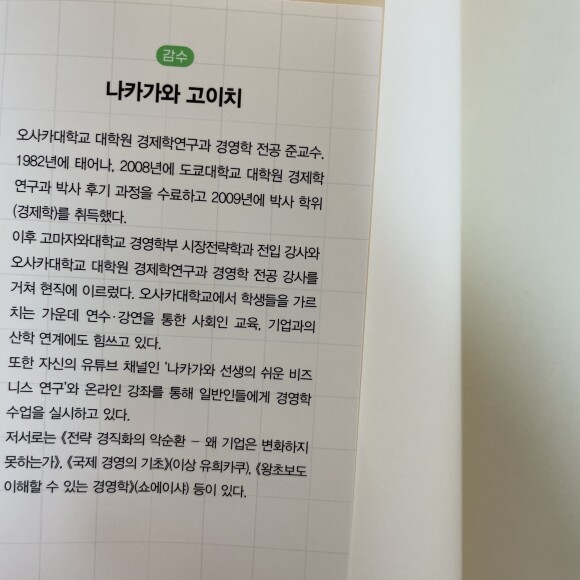 감수
나카가와 고이치
오사카대학교 대학원 경제학연구과 경영학 전공 준교수.
1982년에 태어나, 2008년에 도쿄대학교 대학원 경제학
연구과 박사 후기 과정을 수료하고 2009년에 박사 학위
(경제학)를 취득했다.
이후 고마자와대학교 경영학부 시장전략학과 전임 강사와
오사카대학교 대학원 경제학연구과 경영학 전공 강사를
거쳐 현직에 이르렀다. 오사카대학교에서 학생들을 가르
치는 가운데 연수·강연을 통한 사회인 교육, 기업과의
산학 연계에도 힘쓰고 있다.
또한 자신의 유튜브 채널인 '나카가와 선생의 쉬운 비즈
니스 연구'와 온라인 강좌를 통해 일반인들에게 경영학
수업을 실시하고 있다.
저서로는 《전략 경직화의 악순환 – 왜 기업은 변화하지
못하는가》, 《국제 경영의 기초》(이상 유희카쿠), 《왕초보도
이해할 수 있는 경영학》(쇼에이샤) 등이 있다.